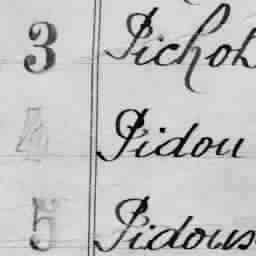 3 Pichoh
4 Pidou
5 Pidous